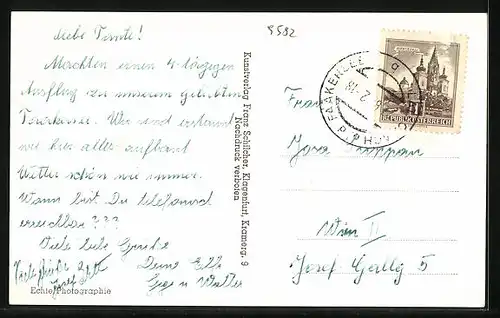 Liebe Tante!
Machten einen 4-tägigen
Ausflug zu unserem geliebten
Wir sind erstaunt
wie hier alles aufbaut
Wetter schön wie immer.
Wann bist Du telefonisch
erreichbar ???
Viele liebe Grüße
Deine Elli
u Walter
Echte Photographie
Kunstverlag Franz Schilcher, Klagenfurt, Kramerg. 9
Nachdruck verboten
5582
FAAKERSEE
REPUBLIK ÖSTERREICH
Frau
Wien II
Josef Gallg 5